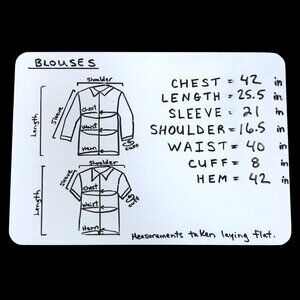 BLOUSES
Shoulder
Sleeve
Length
Chest
Waist
Hem
Cuff
Shoulder
Sleeve
Length
Chest
Waist
Hem
Cuff
CHEST = 42 in
LENGTH = 25.5 in
SLEEVE = 21 in
SHOULDER = 16.5 in
WAIST = 40 in
CUFF = 8 in
HEM = 42 in
Measurements taken laying flat.